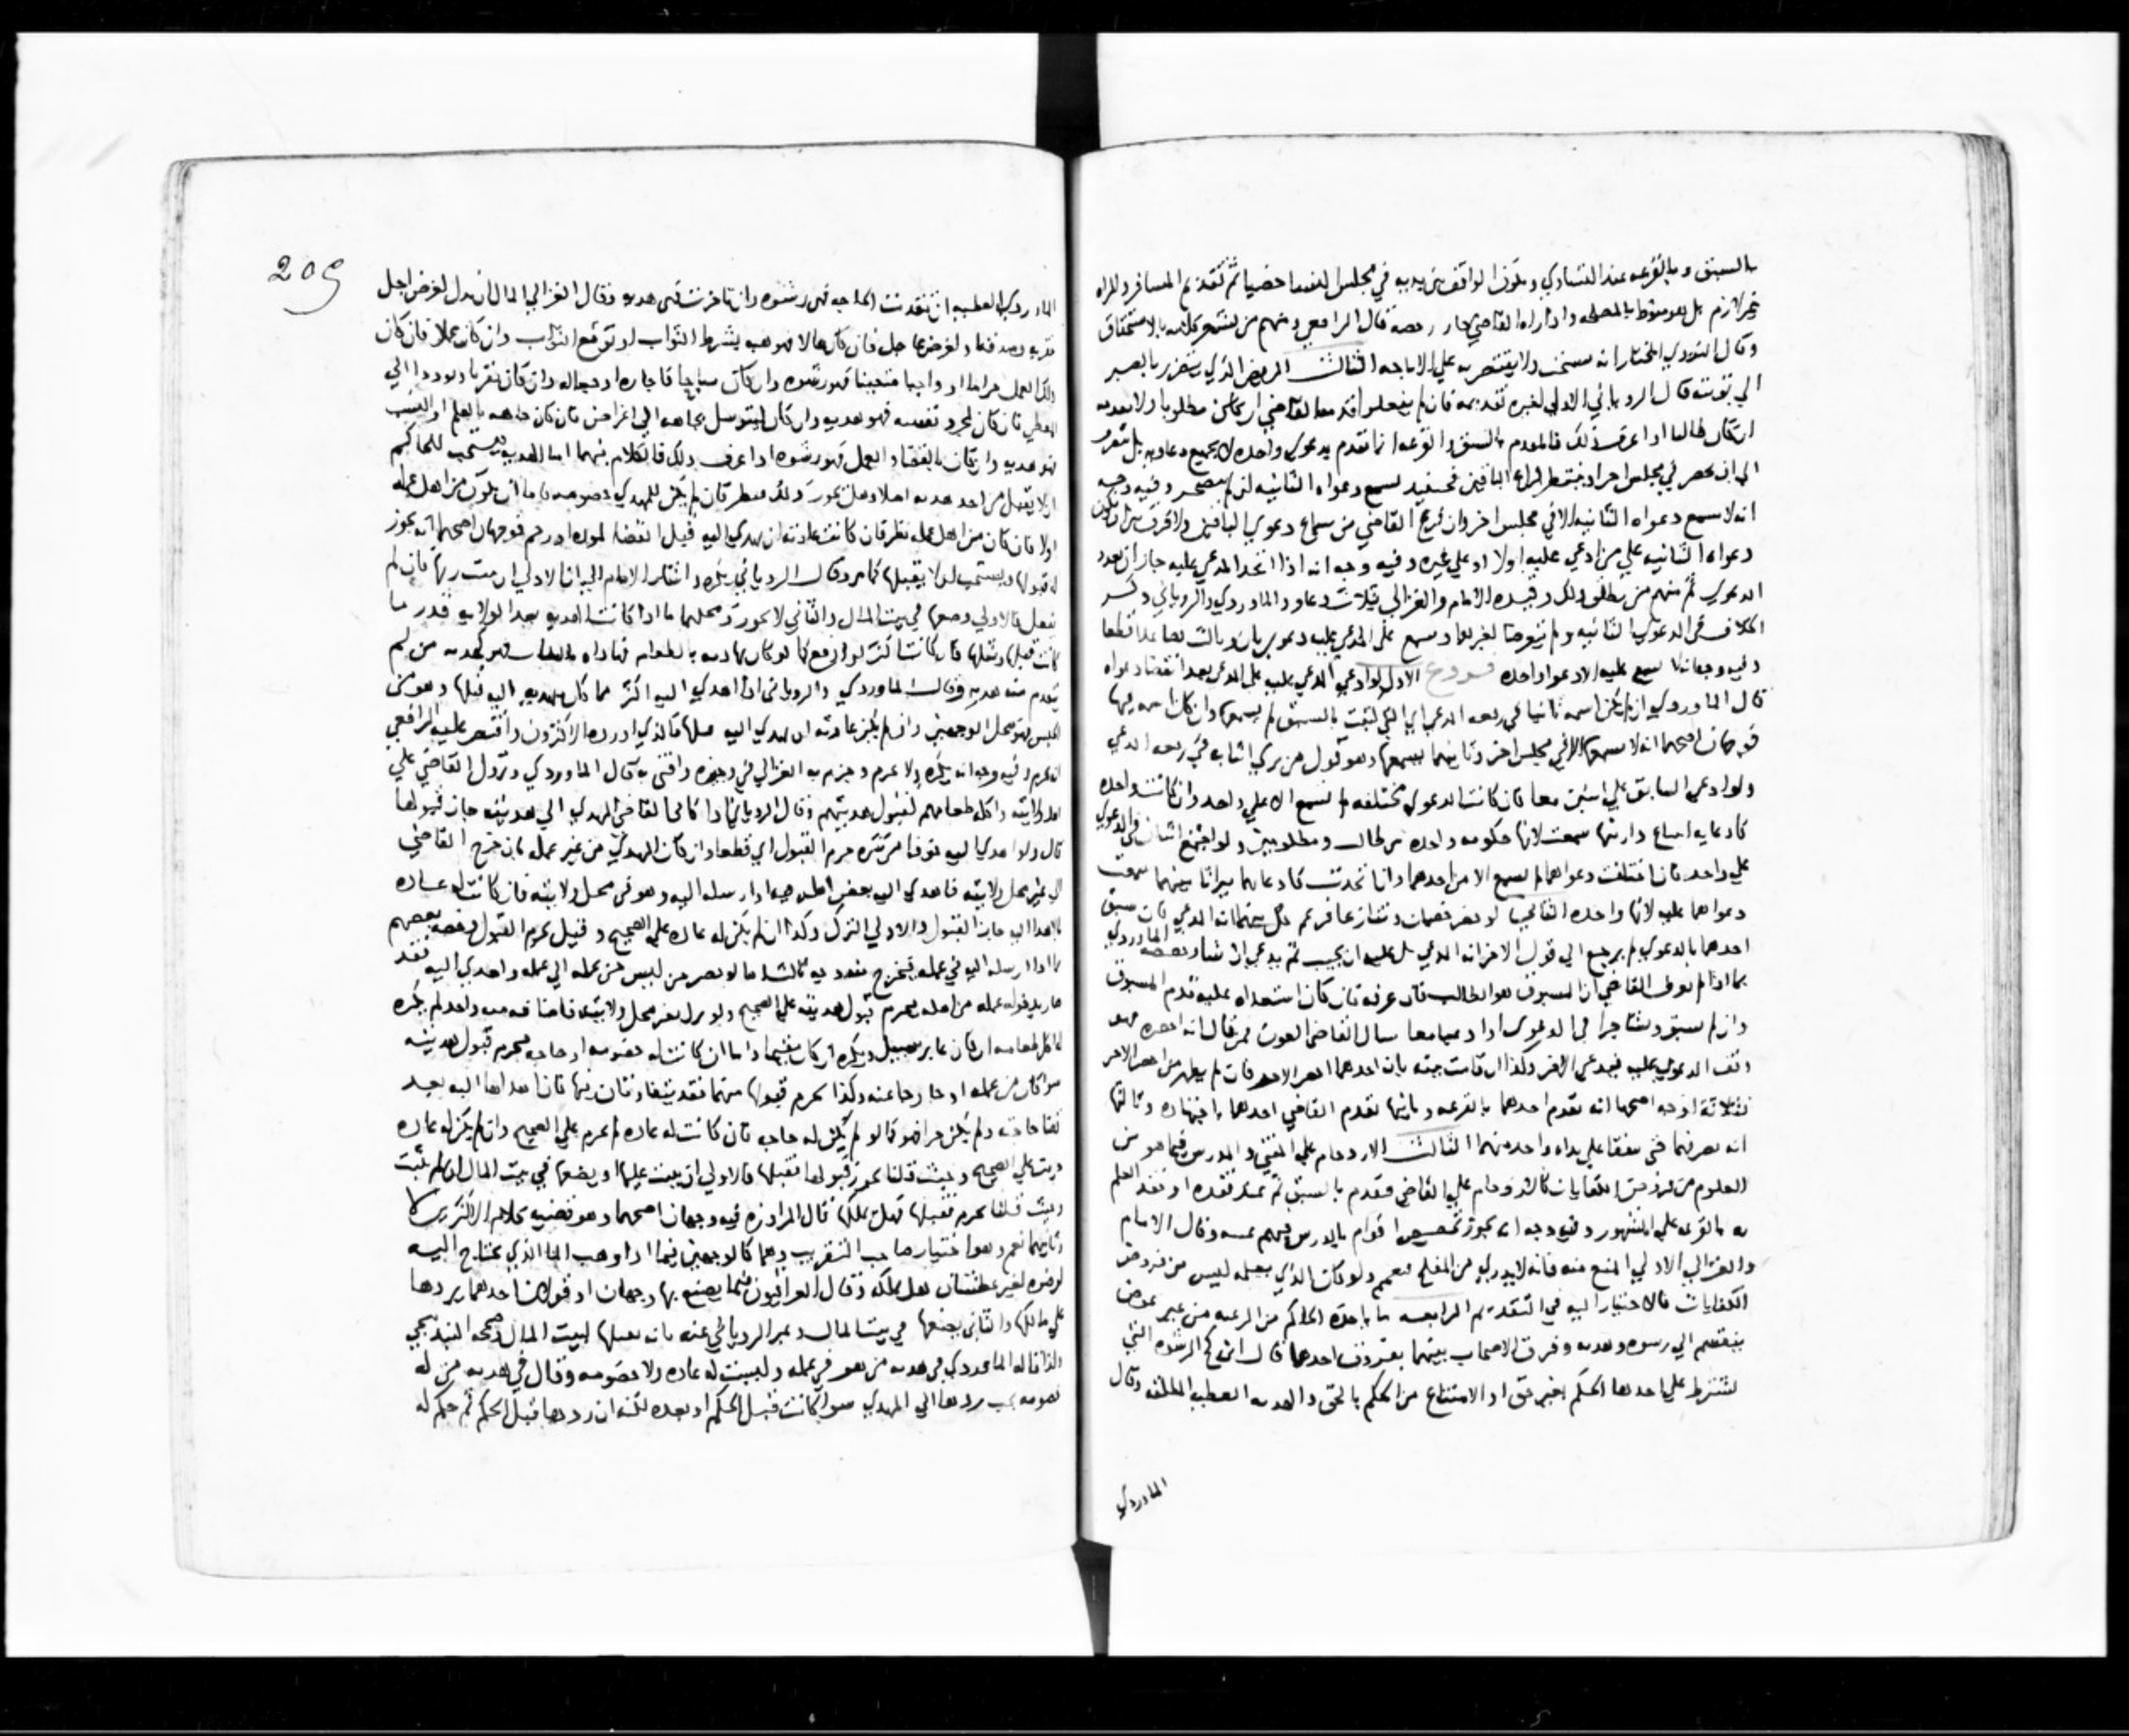 بالسبق وبالقرعه عند التساوي ويكون الواقف بين يديه في مجلس القضا خصما ثم تقديم المسافر والمراه
غير لازم بل هو منوط بالمصلحه واذا راه القاضي جاز رخصه قال الرافعي ومنهم من يشعر كلامه بالاستحقاق
وقال النووي المختار انه مستحب ولا يقتصر به علي الاباحه الثالث المريض الذي يتضرر بالصبر
الي نوبته قال الروياني الاولي لغيره تقديمه فان لم يفعل قدمه القاضي ان كان مطلوبا ولا يقدمه
ان كان طالبا اذا عرفت ذلك فالمقدم بالسبق والقرعه انما يقدم بدعوي واحده لا بجميع دعاويه بل
الي ان يحضر في مجلس اخر او ينتظر فراغ الباقين فحينئذ تسمع دعواه الثانيه ان لم يضجر وفيه وجه
انه لا تسمع دعواه الثانيه الا في مجلس اخر وان فرغ القاضي من سماع دعوي الباقين ولا فرق بين ان تكون
دعواه الثانيه علي من ادعي عليه اولا او علي غيره وفيه وجه انه اذا اتحد المدعي عليه جاز ان تعدد
الدعوي ثم منهم من يطلق ذلك وقيده الامام والغزالي بثلاث دعاو والماوردي والروياني
الخلاف في الدعوي الثانيه ولم يتعرضا لغيرها وتسمع علي المدعي عليه دعوي ثان وثالث
وفيه وجه انه لا تسمع عليه الا دعوا واحده فروع الاول لو ادعي المدعي عليه علي المدعي بعد انقضا دعواه
قال الماوردي ان لم يكن اسمه ثانيا في رقعه المدعي اي التي تثبت بالسبق لم يسمعها وان كان اسمه فيها
فوجهان اصحهما انه لا يسمعها الا في مجلس اخر وثانيهما يسمعها وهو قول من يري اثباته في رقعه المدعي
ولو ادعي السابق علي اثنين معا فان كانت الدعوي مختلفه لم تسمع الا علي واحد وان كانت واحده
كادعايه ابتياع دار منهما سمعت لانها حكومه واحده من طالب ومطلوبين ولو اجتمع اثنان في الدعوي
علي واحد فان اختلفت دعواهما لم يسمع الا من احدهما وان اتحدت كادعايهما ميراثا بينهما سمعت
دعواهما عليه لانها واحده الثاني لو حضر خصمان وتنازعا فزعم كل منهما انه المدعي فان سبق
احدهما بالدعوي لم يرجع الي قول الاخر انه المدعي بل عليه ان يجيب ثم يدعي ان شا وخصه الماوردي
بما اذا لم يعرف القاضي ان المسبوق هو الطالب فان عرفه فان كان استعداه عليه قدم المسبوق
وان لم يسبق وتشاجرا في الدعوي اذا دعيا معا سال القاضي العون فمن قال انه احضره فهو
وتقف الدعوي عليه فيدعي الاخر وكذا ان قامت بينه بان احدهما احضر الاخر فان لم يعلم من احضر الاخر
فثلاثة اوجه اصحها انه يقدم احدهما بالقرعه وثانيها يقدم القاضي احدهما باجتهاده وثالثها
انه يصرفهما حتي يتفقا علي بداه واحد منهما الثالث الازدحام علي المفتي والمدرس فيما هو من
العلوم من فروض الكفايات كالازدحام علي القاضي فيقدم بالسبق ثم عند فقده او فقد العلم
به بالقرعه علي المشهور وفيه وجه انه يجوز تخصيص اقوام بالدرس وقال الامام
والغزالي الاولي المنع منه فانه لا يدري من المفلح منهم ولو كان الذي يعلمه ليس من فروض
الكفايات فالاختيار اليه في التقديم الرابعه ما ياخذه الحاكم من الرعيه من غير عوض
ينقسم الي رشوه وهديه وفرق الاصحاب بينهما بفروق احدها قال ابن كج الرشوه التي
يشترط علي اخذها الحكم بغير حق او الامتناع من الحكم بالحق والهديه العطيه المطلقه وقال
الماوردي
209
الماوردي العطيه ان تقدمت الحاجه فهي رشوه وان تاخرت فهي هديه وقال الغزالي المال ان بذل لغرض اجل
فقربه وصدقه او لغرض عاجل فان كان مالا فهو هبه بشرط الثواب او توقع الثواب وان كان عملا فان كان
ذلك العمل حراما او واجبا متعينا فهو رشوه وان كان مباحا فاجاره او جعاله وان كان تقربا وتوددا الي
المعطي فان كان لمجرد نفسه فهو هديه وان كان ليتوسل بجاهه الي اغراض فان كان جاهه بالعلم او النسب
فهو هديه وان كان بالقضا والعمل فهو رشوه اذا عرف ذلك فالكلام فيهما اما الهديه فيستحب للحاكم
ان لا يقبل من احد هديه اصلا وهل يجوز ذلك ينظر فان لم يكن للمهدي خصومه فاما ان يكون من اهل عمله
اولا فان كان من اهل عمله نظر فان كانت عادته ان يهدي اليه قبل القضا لموده او رحم فوجهان اصحهما انه يجوز
له قبولها ويستحب ان لا يقبلها كما مر وقال الروياني يكره واشار الامام الي ان الاولي ان يثيب ربها فان لم
يفعل فالاولي وضعها في بيت المال والثاني لا يجوز ومحلهما ما اذا كانت الهديه بعد الولايه قدر ما
كانت قبلها ومثلها فان كانت اكثر او ارفع كما لو كان يهاديه بالطعام فهاداه بالثياب فهو كهديه من لم
يتقدم منه هديه وقال الماوردي والروياني اذا اهدي اليه اكثر مما كان يهديه اليه قبلها وهو من
الجنس فهو محل الوجهين وان لم يكن عادته ان يهدي اليه قبلها فالذي اورده الاكثرون واقتصر عليه الرافعي
انه يحرم وفيه وجه انه يكره ولا يحرم وجزم به الغزالي في وجيزه وافتي به قال الماوردي ونزول القاضي علي
اهل ولايته واكل طعامهم كقبول هديتهم وقال الروياني اذا كافي القاضي المهدي الي هديته جاز قبولها
قال ولو اهدي اليه خوفا من شره حرم القبول اي قطعا وان كان المهدي من غير عمله بان خرج القاضي
الي غير محل ولايته فاهدي اليه بعض اهله جاز او ارسله اليه وهو في محل ولايته فان كانت له عاده
بالهدا اليه جاز القبول والاولي الترك وكذا ان لم يكن له عاده علي الصحيح وقيل يحرم القبول وخصه بعضهم
بما اذا ارسله اليه في عمله فيخرج منه وجه ثالث اما لو حضر من ليس من عمله الي عمله واهدي اليه فقد
صار بدخوله عمله من اهله فيحرم قبول هديته علي الصحيح ولو نزل بغير محل ولايته قاضيا فيه احد لم يكره
له اكل طعامه ان كان عابر سبيل ويكره ان كان مقيما واما ان كانت له خصومه او حاجه فيحرم قبول هديته
سوا كان من عمله او خارجا عنه وكذا يحرم قبولها منهما فقد يتفاوتان فيها فان اهداها اليه بعد
قضا حاجته ولم يكن جزا فهو كما لو لم يكن له حاجه فان كانت له عاده لم يحرم علي الصحيح وان لم يكن له عاده
حرمت علي الصحيح وحيث قلنا يجوز قبولها فقبلها فالاولي ان يثيب عليها او يضعها في بيت المال ان لم يثب
وحيث قلنا يحرم فقبلها فهل يملكها قال المراوزه فيه وجهان اصحهما وهو قضيه كلام الاكثرين لا
وثانيهما نعم وهو اختيار صاحب التقريب وهما كالوجهين فيما اذا وهب الما الذي يحتاج اليه
لوضوه لغير عطشان هل يملكه وقال العراقيون فيما يصنع بها وجهان او قولان احدهما يردها
علي مالكها والثاني يضعها في بيت المال وعبر الروياني عنه بانه يقبلها لبيت المال وصححه البندنيجي
وكذا قاله الماوردي في هديه من هو في عمله وليست له عاده ولا خصومه وقال في هديه من له
خصومه يجب ردها الي المهدي سوا كانت قبل الحكم او بعده لكنه ان ردها قبل الحكم ثم حكم له